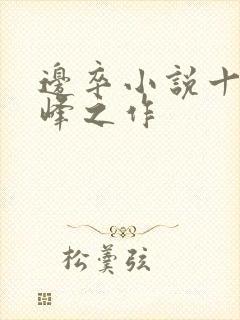 邊卒小說十
峰之作
松羹弦